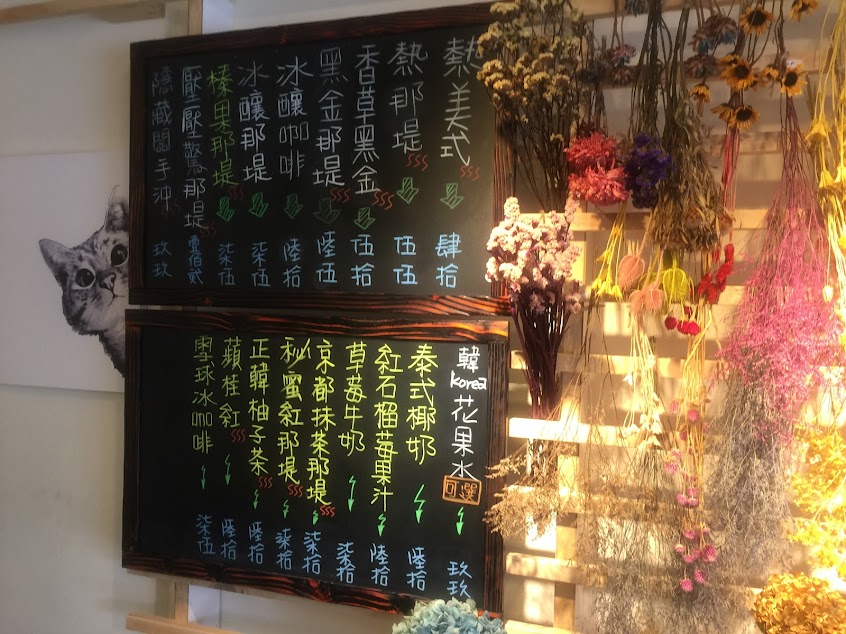 熱美式 肆拾
熱那堤 伍伍
香草黑金 伍拾
黑金那堤 陸伍
冰釀咖啡 陸拾
冰釀那堤 柒伍
榛果那堤 柒伍
壓壓驚那堤 壹佰貳
隱藏關手沖 玖玖
韓korea花果水 可選 玖玖
泰式椰奶 陸拾
紅石榴莓果汁 陸拾
草莓牛奶 柒拾
京都抹茶那堤 柒拾
秘蜜紅那堤 柒拾
正韓柚子茶 陸拾
蘋桂紅 陸拾
雪球冰咖啡 柒伍